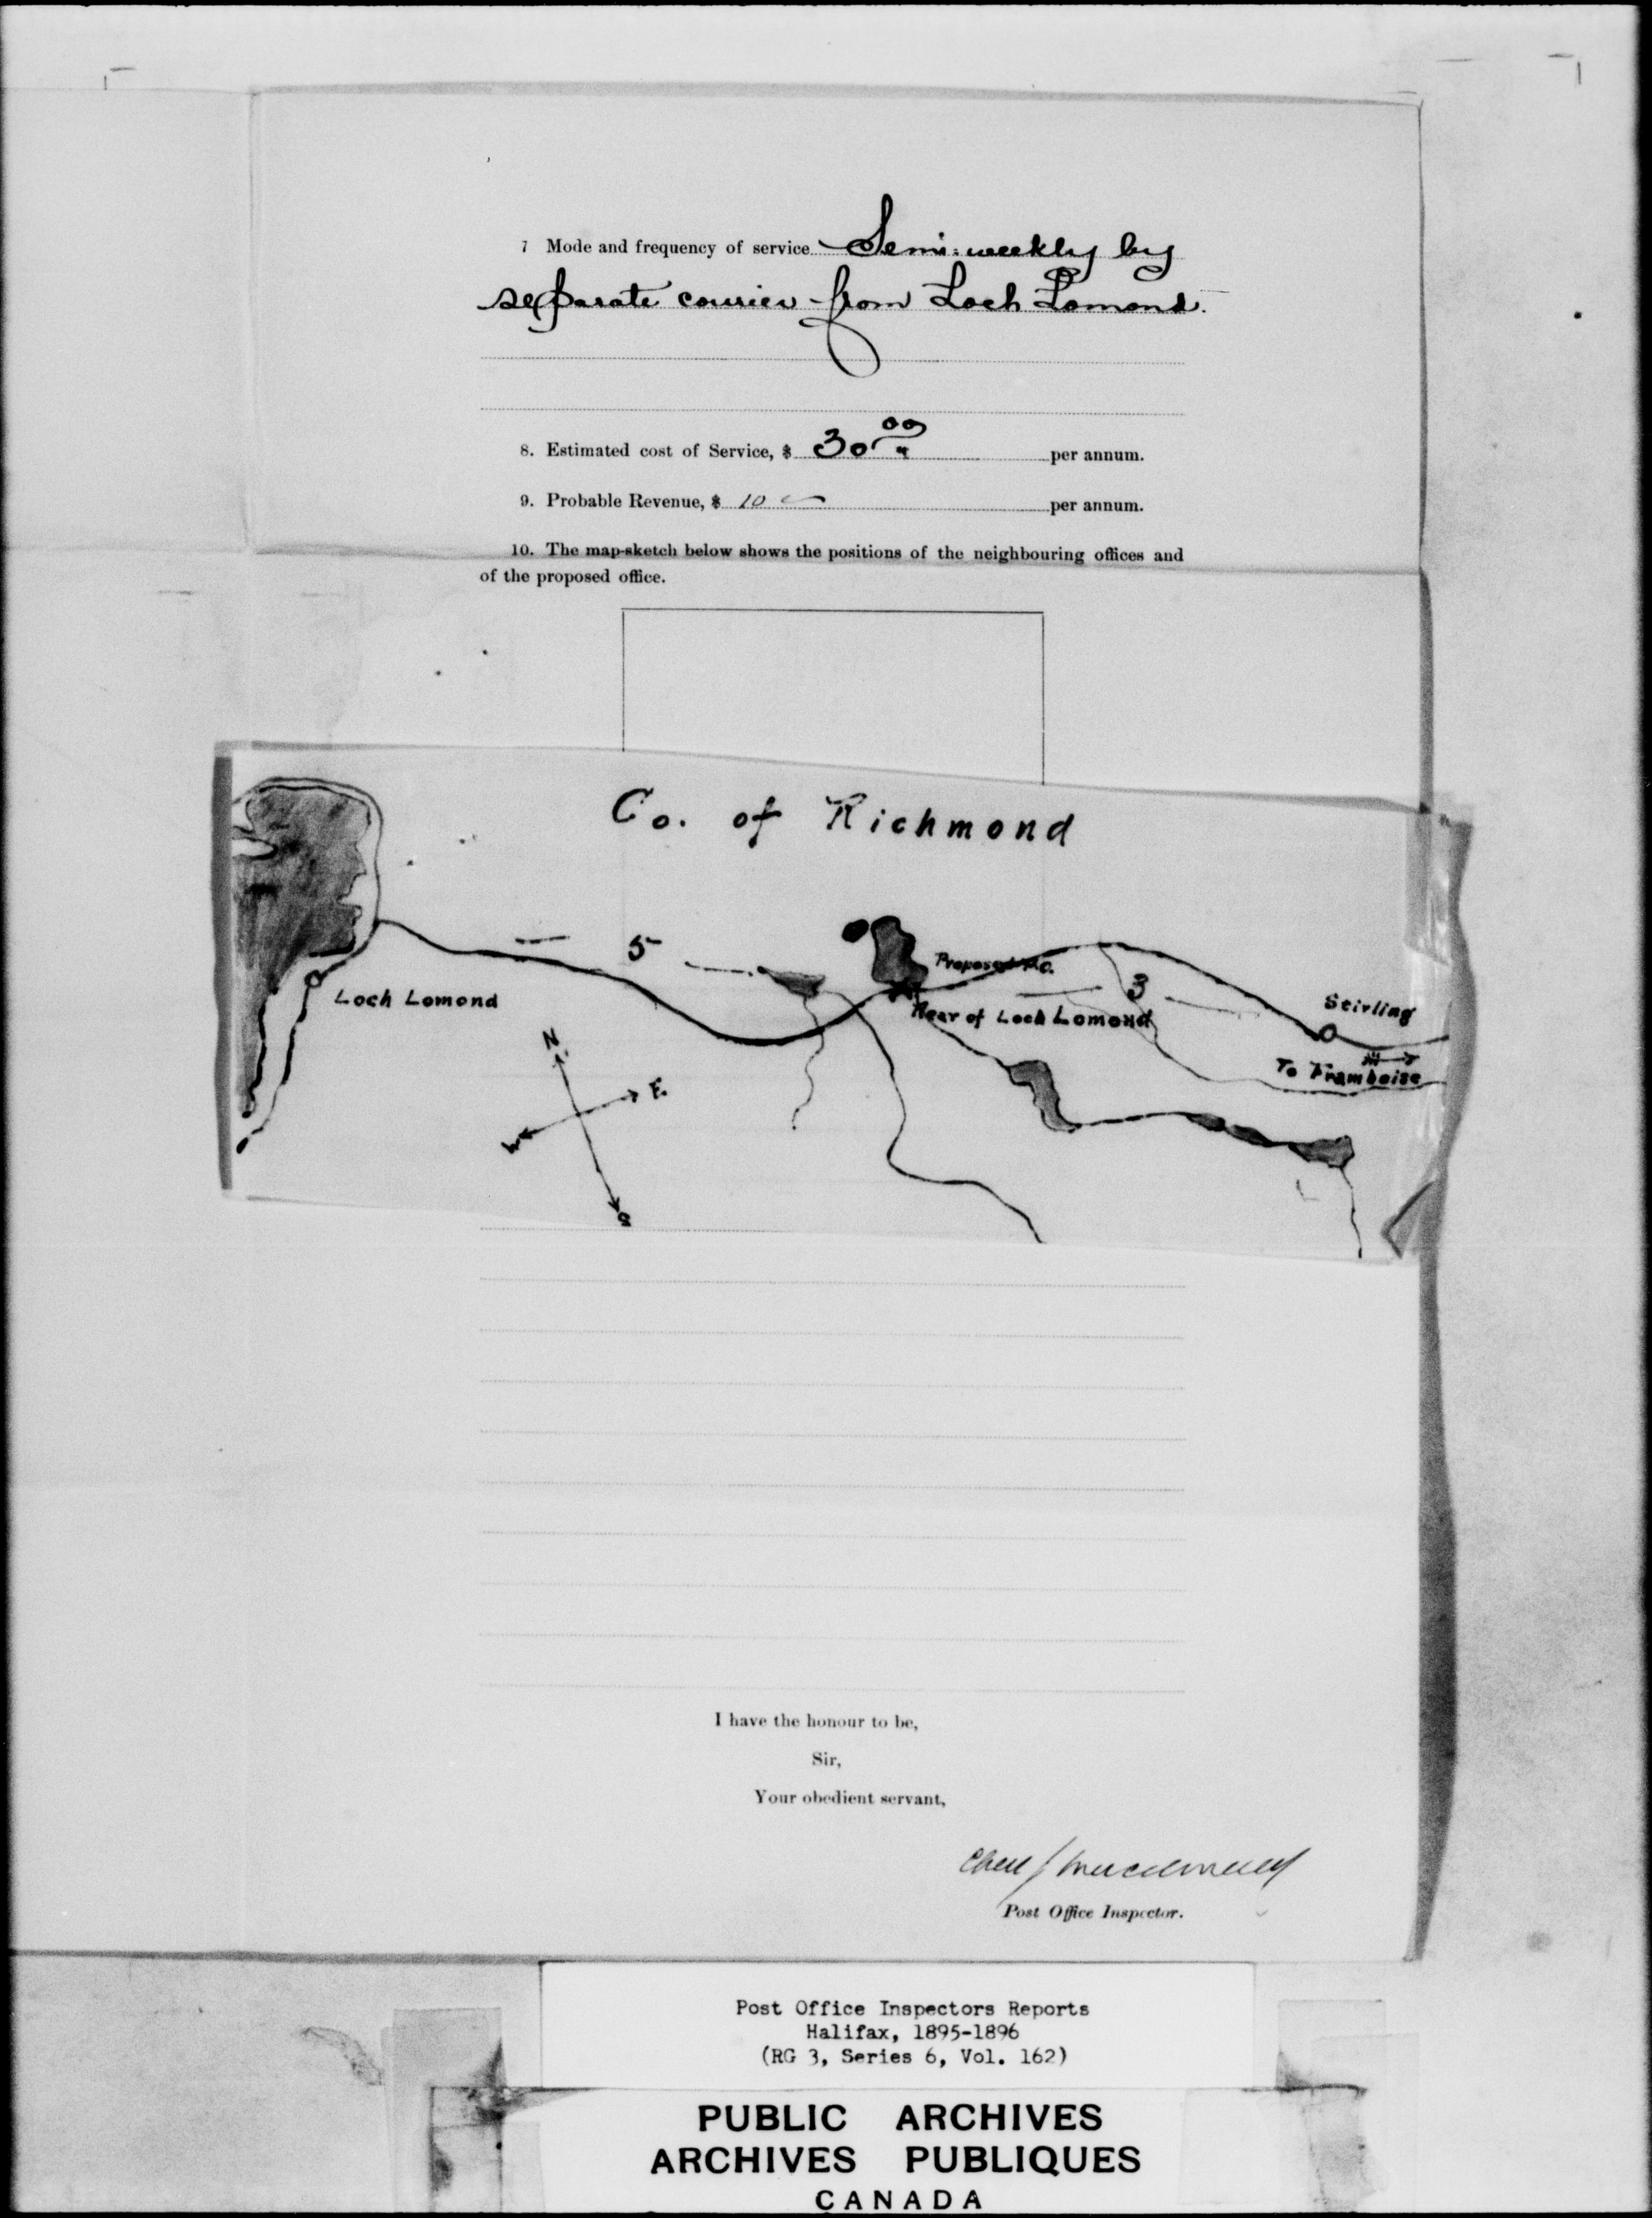 7 Mode and frequency of service Semi-weekly by
separate courier from Loch Lomond.
8. Estimated cost of Service, $ 30 00 per annum.
9. Probable Revenue, $ 10 per annum.
10. The map-sketch below shows the positions of the neighbouring offices and
of the proposed office.
Co. of Richmond
5
Proposed P.O.
3
Loch Lomond
Rear of Loch Lomond
Stirling
To Framboise
N.
E.
W
S
I have the honour to be,
Sir,
Your obedient servant,
Post Office Inspector.
Post Office Inspectors Reports
Halifax, 1895-1896
(RG 3, Series 6, Vol. 162)
PUBLIC ARCHIVES
ARCHIVES PUBLIQUES
CANADA